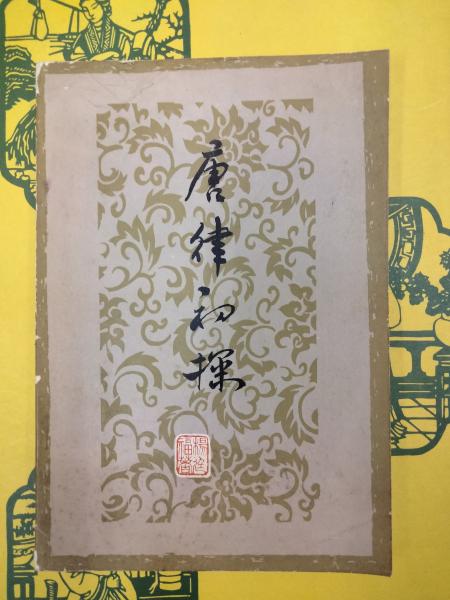 唐律初探
杨廷福著